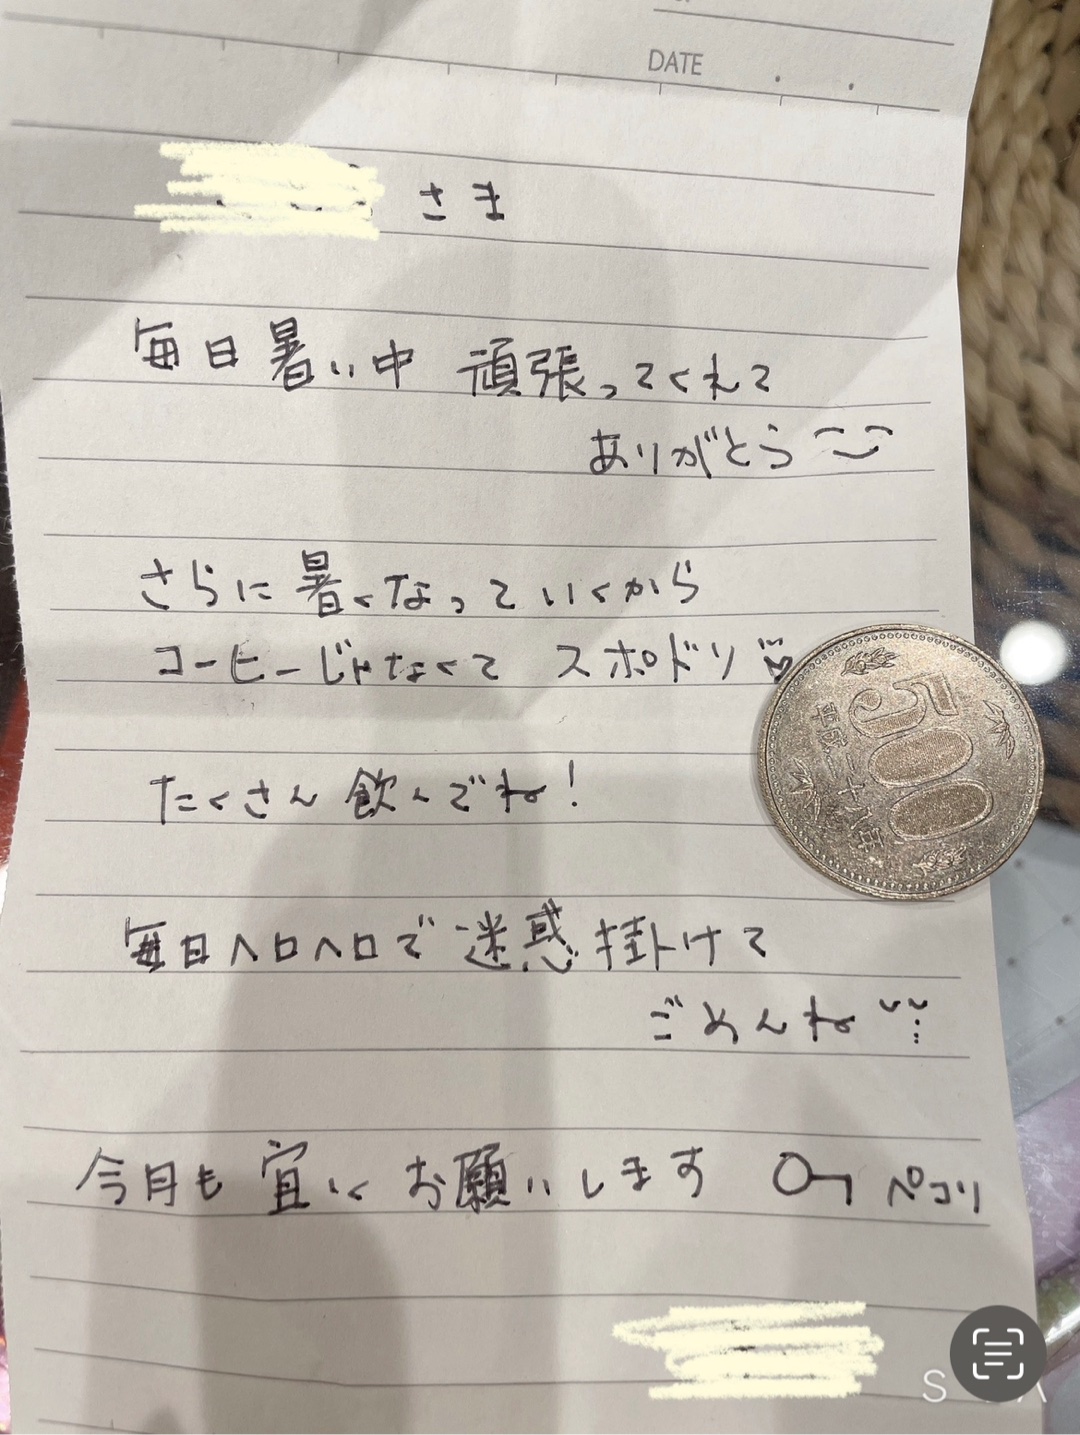 DATE . .
さま
毎日暑い中 頑張ってくれて
ありがとう
さらに暑くなっていくから
コーヒーじゃなくて スポドリ
たくさん飲んでね!
500
平成二十八年
毎日ヘロヘロで迷惑掛けて
ごめんね
今月も宜しくお願いします ペコリ